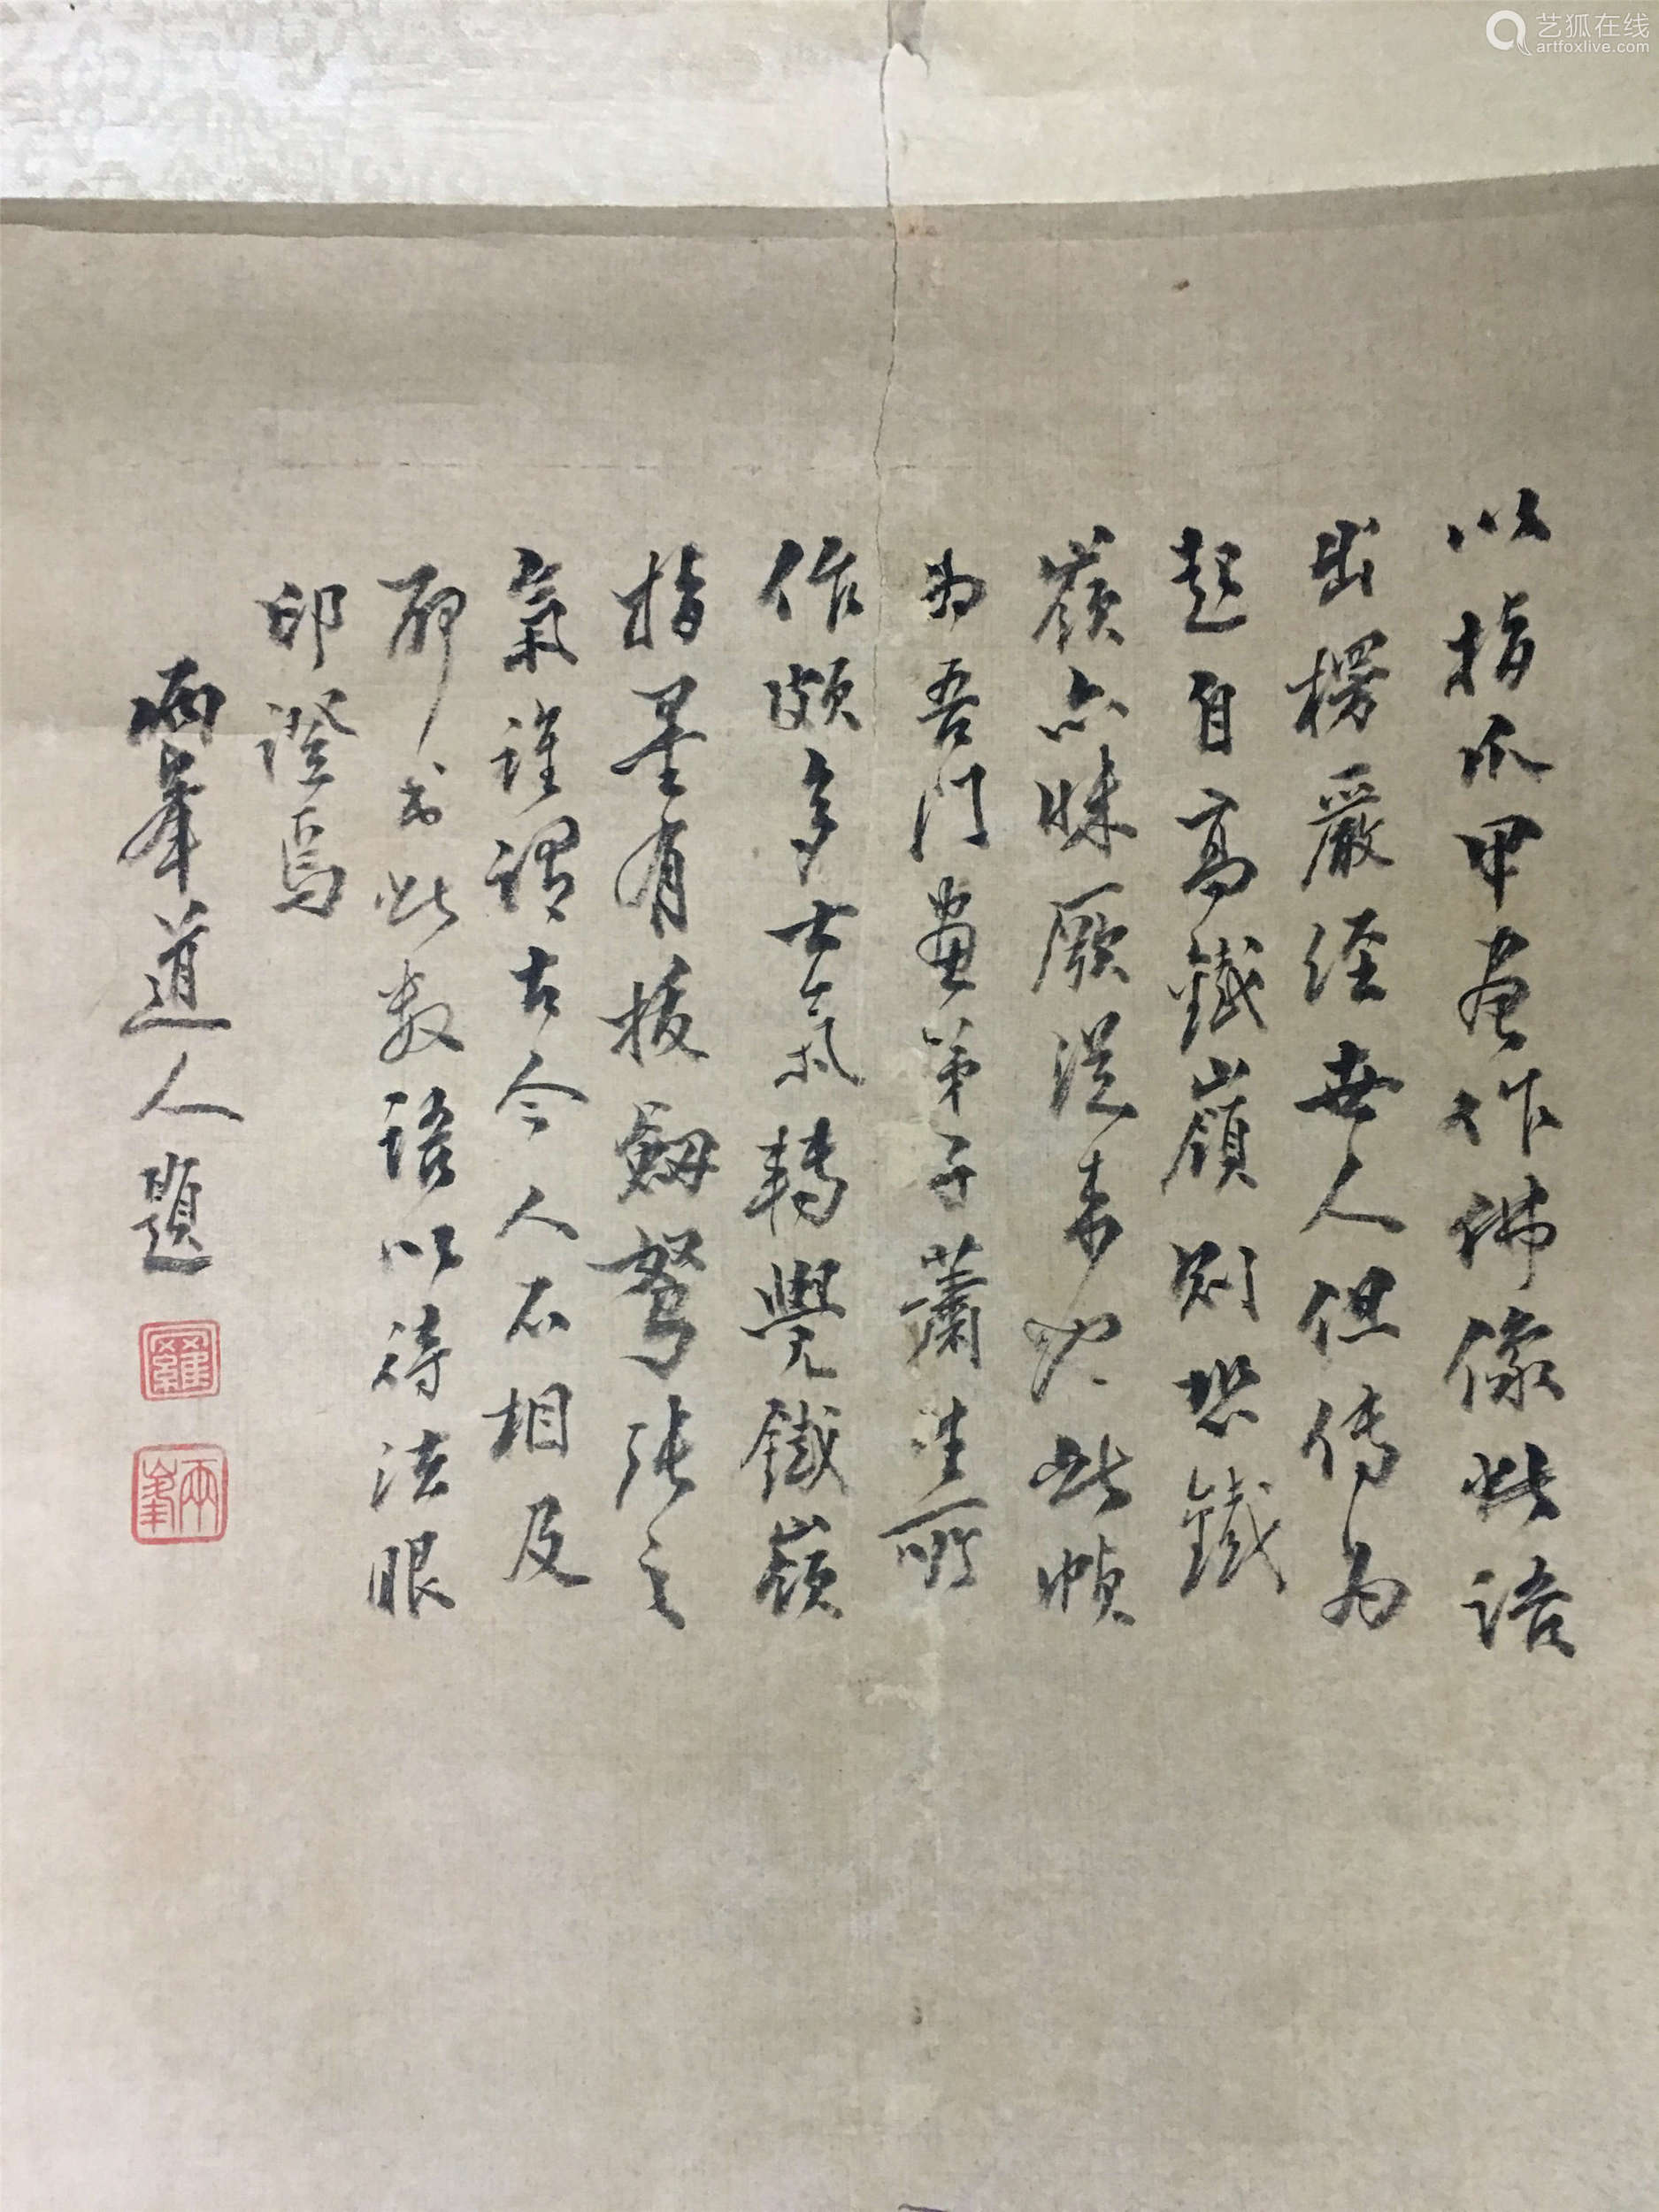 以指爪甲畫作佛像此語
出楞嚴經世人但傳為
起自高鐵嶺則恐鐵
嶺亦昧厥從來也此幀
為吾門畫弟子蕭生所
作頗多士氣轉覺鐵嶺
指墨有拔劍弩張之
氣誰謂古今人不相及
聊書此數語以待法眼
印證焉
兩峯道人題
羅
兩峯
艺狐在线
artfoxlive.com